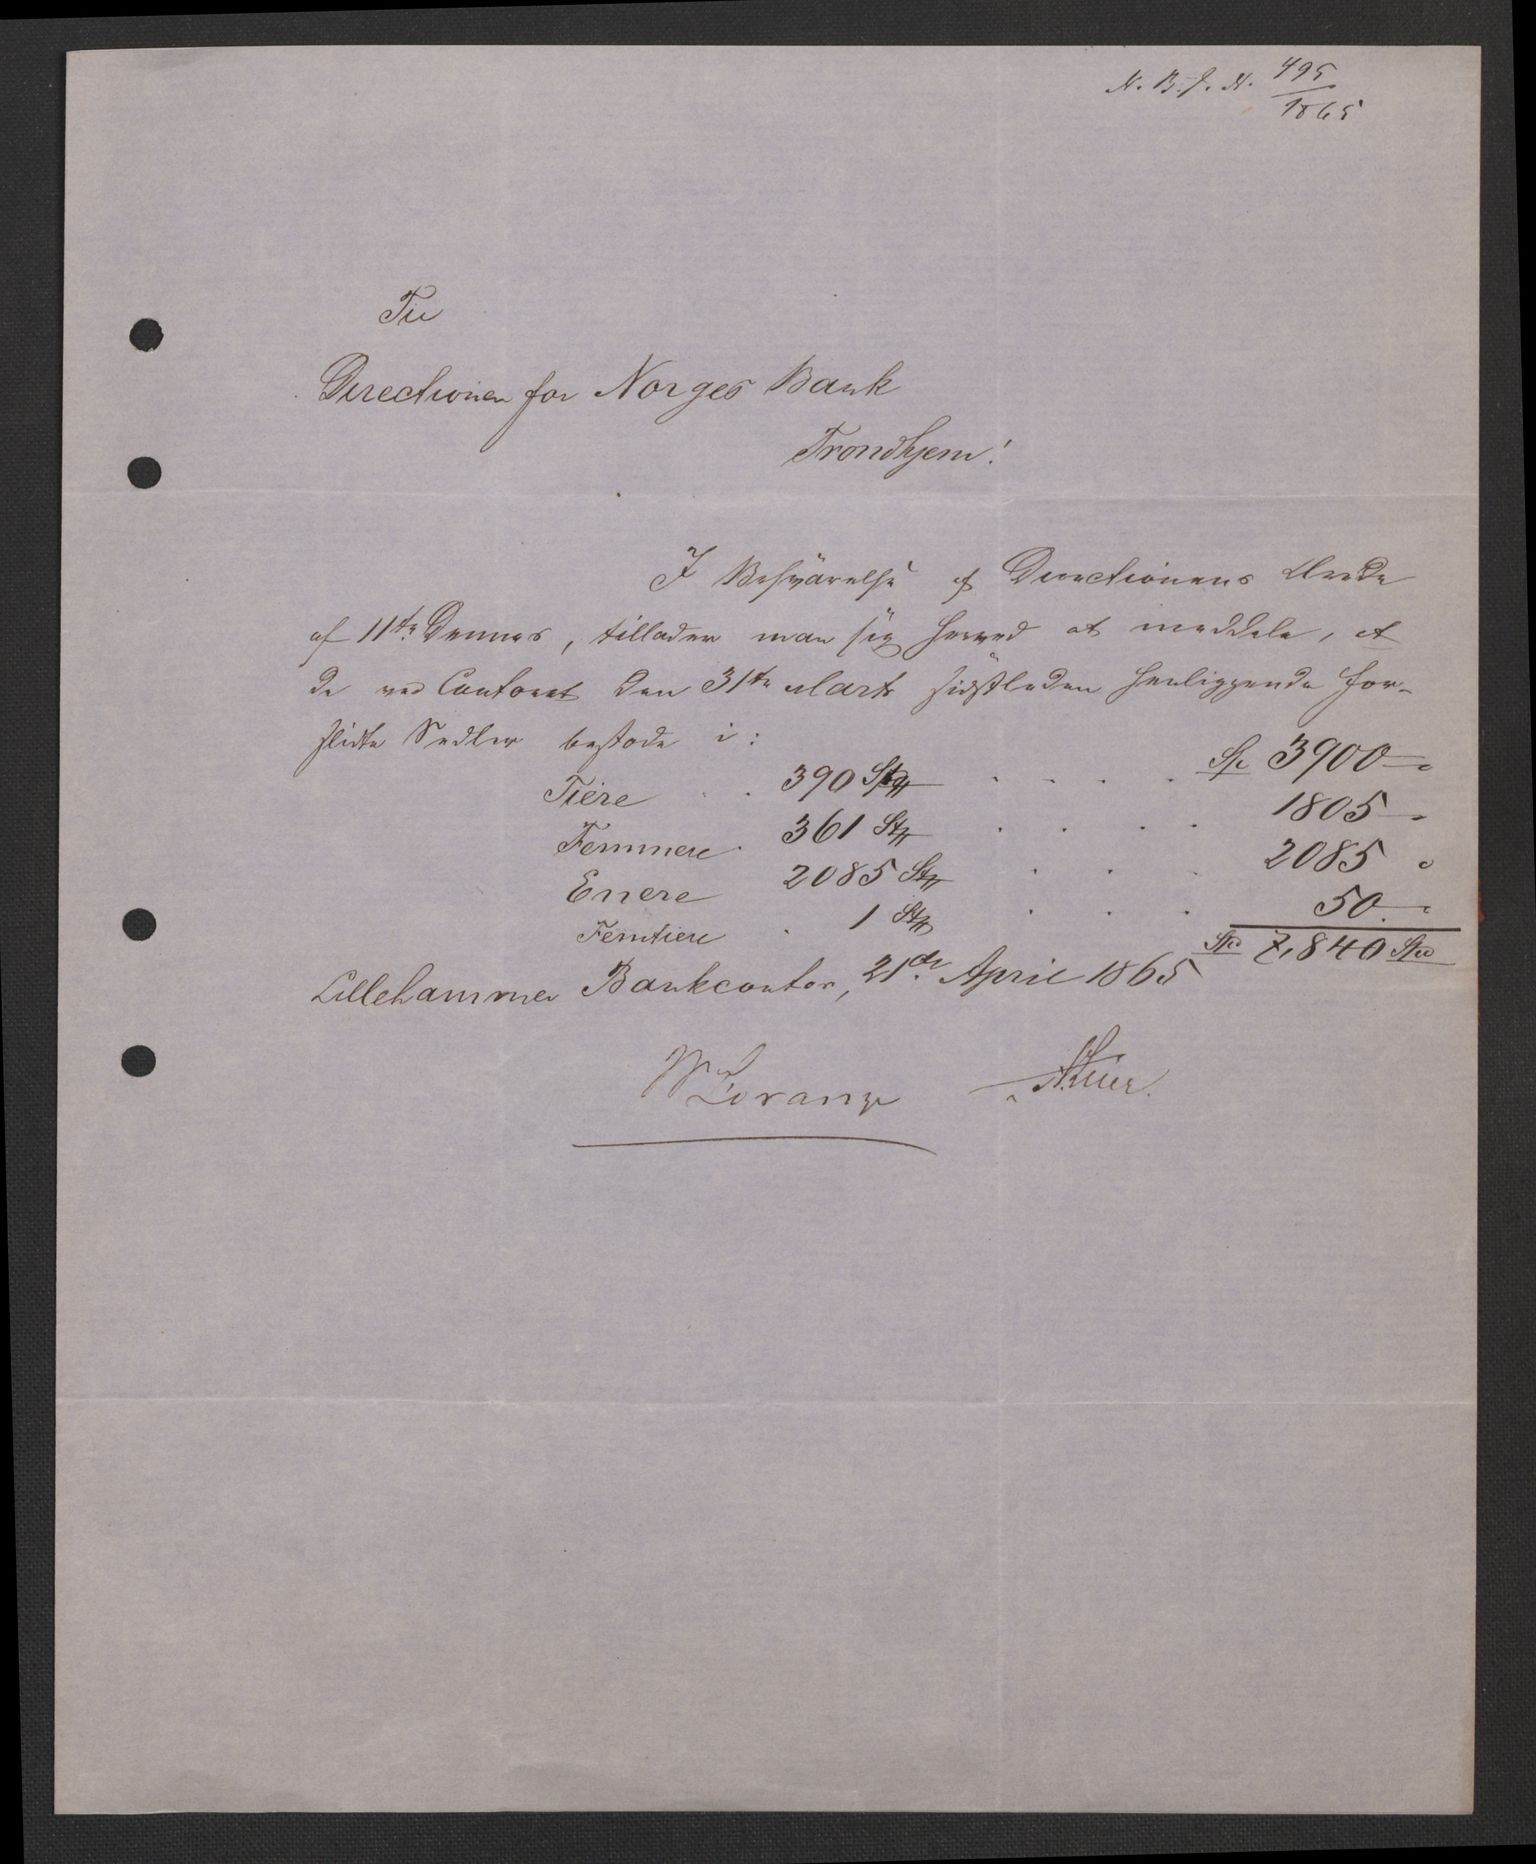 N. B. J. N. 495
1865
Til
Directionen for Norges Bank
Trondhjem!
I Besvarelse af Directionens Ærede
af 11te Dennes, tillader man sig herved at meddele, at
de ved Contoret den 31te Marts sidstleden henliggende for-
slidte Sedler bestode i:
Tiere . . 390 St . . . . Spd 3900 "
Femmere . 361 St . . . . 1805 "
Enere 2085 St . . . 2085 "
Femtiere . 1 St . . . 50 "
Spd 7,840 Spd
Lillehammer Bankcontor, 21de April 1865
Lorange